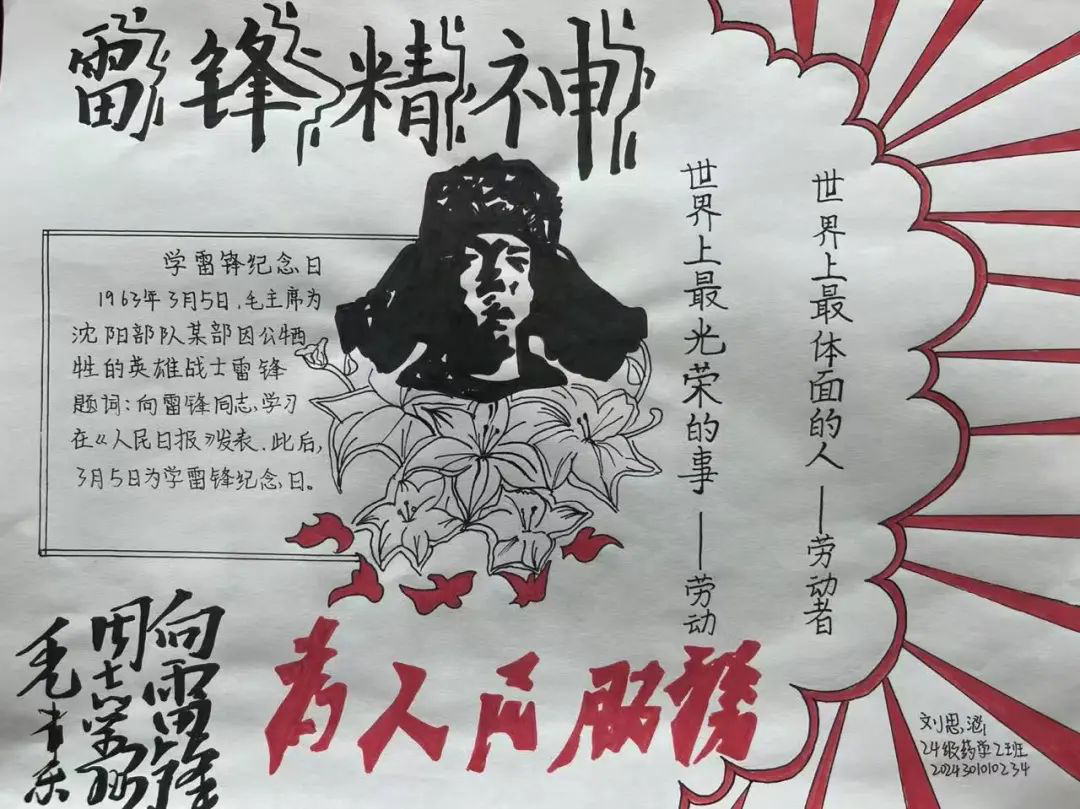 雷锋精神
学雷锋纪念日
1963年3月5日，毛主席为
沈阳部队某部因公牺
牲的英雄战士雷锋
题词：向雷锋同志学习
在《人民日报》发表、此后，
3月5日为学雷锋纪念日。
世界上最体面的人——劳动者
世界上最光荣的事——劳动
向雷锋
同志学习
毛泽东
为人民服务
刘思
24级药学2班
2024301010234